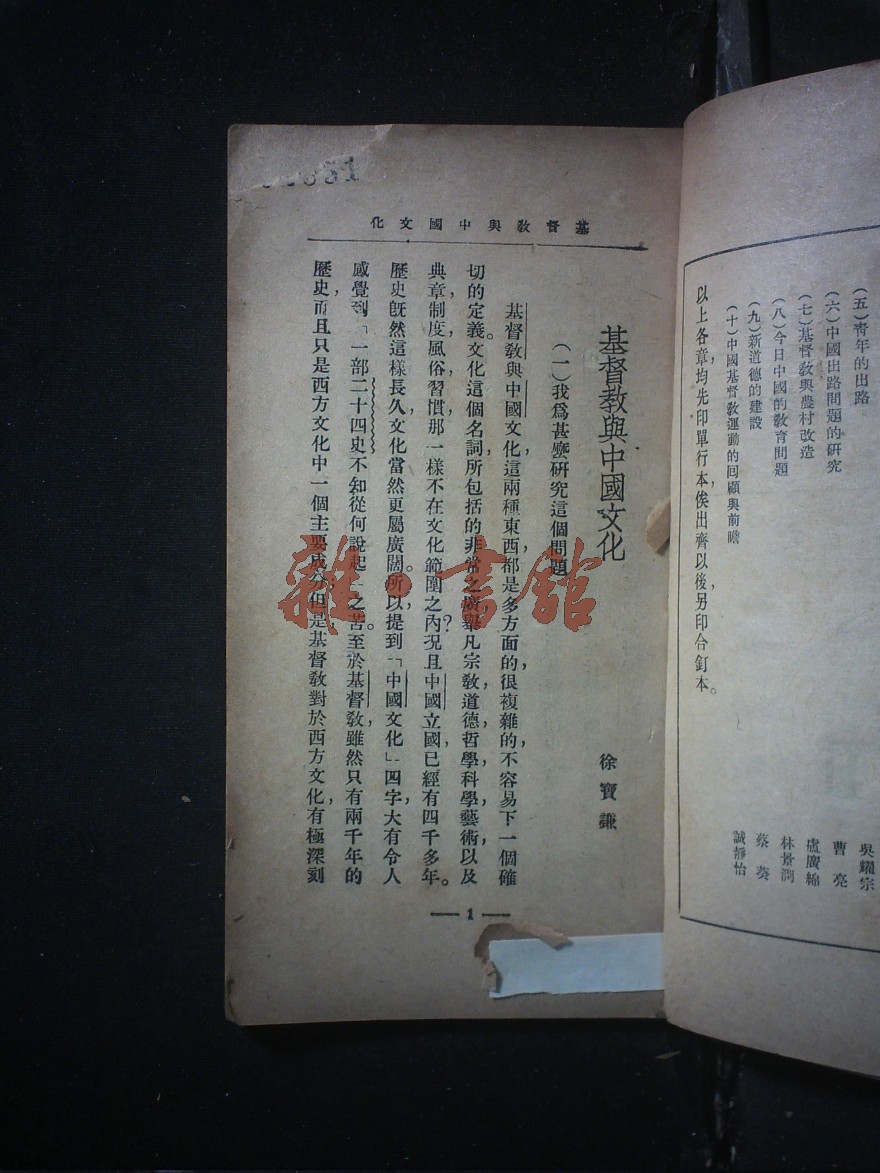 (五)青年的出路
吳耀宗
(六)中國出路問題的研究
曹亮
(七)基督敎與農村改造
盧廣綿
(八)今日中國的敎育問題
林景潤
(九)新道德的建設
蔡葵
(十)中國基督敎運動的回顧與前瞻
誠靜怡
以上各章,均先印單行本,俟出齊以後,另印合釘本。
基督敎與中國文化
基督教與中國文化
徐寶謙
(一)我爲甚麼研究這個問題
基督敎與中國文化,這兩種東西,都是多方面的,很複雜的,不容易下一個確
切的定義。文化這個名詞,所包括的非常之廣,舉凡宗敎,道德,哲學,科學,藝術,以及
典章,制度,風俗,習慣,那一樣不在文化範圍之內?況且中國立國,已經有四千多年。
歷史旣然這樣長久,文化當然更屬廣闊。所以提到「中國文化」四字,大有令人
感覺到「一部二十四史,不知從何說起」之苦。至於基督敎,雖然只有兩千年的
歷史,而且只是西方文化中一個主要成分,但是基督敎對於西方文化,有極深刻
— 1 —
雜·書館